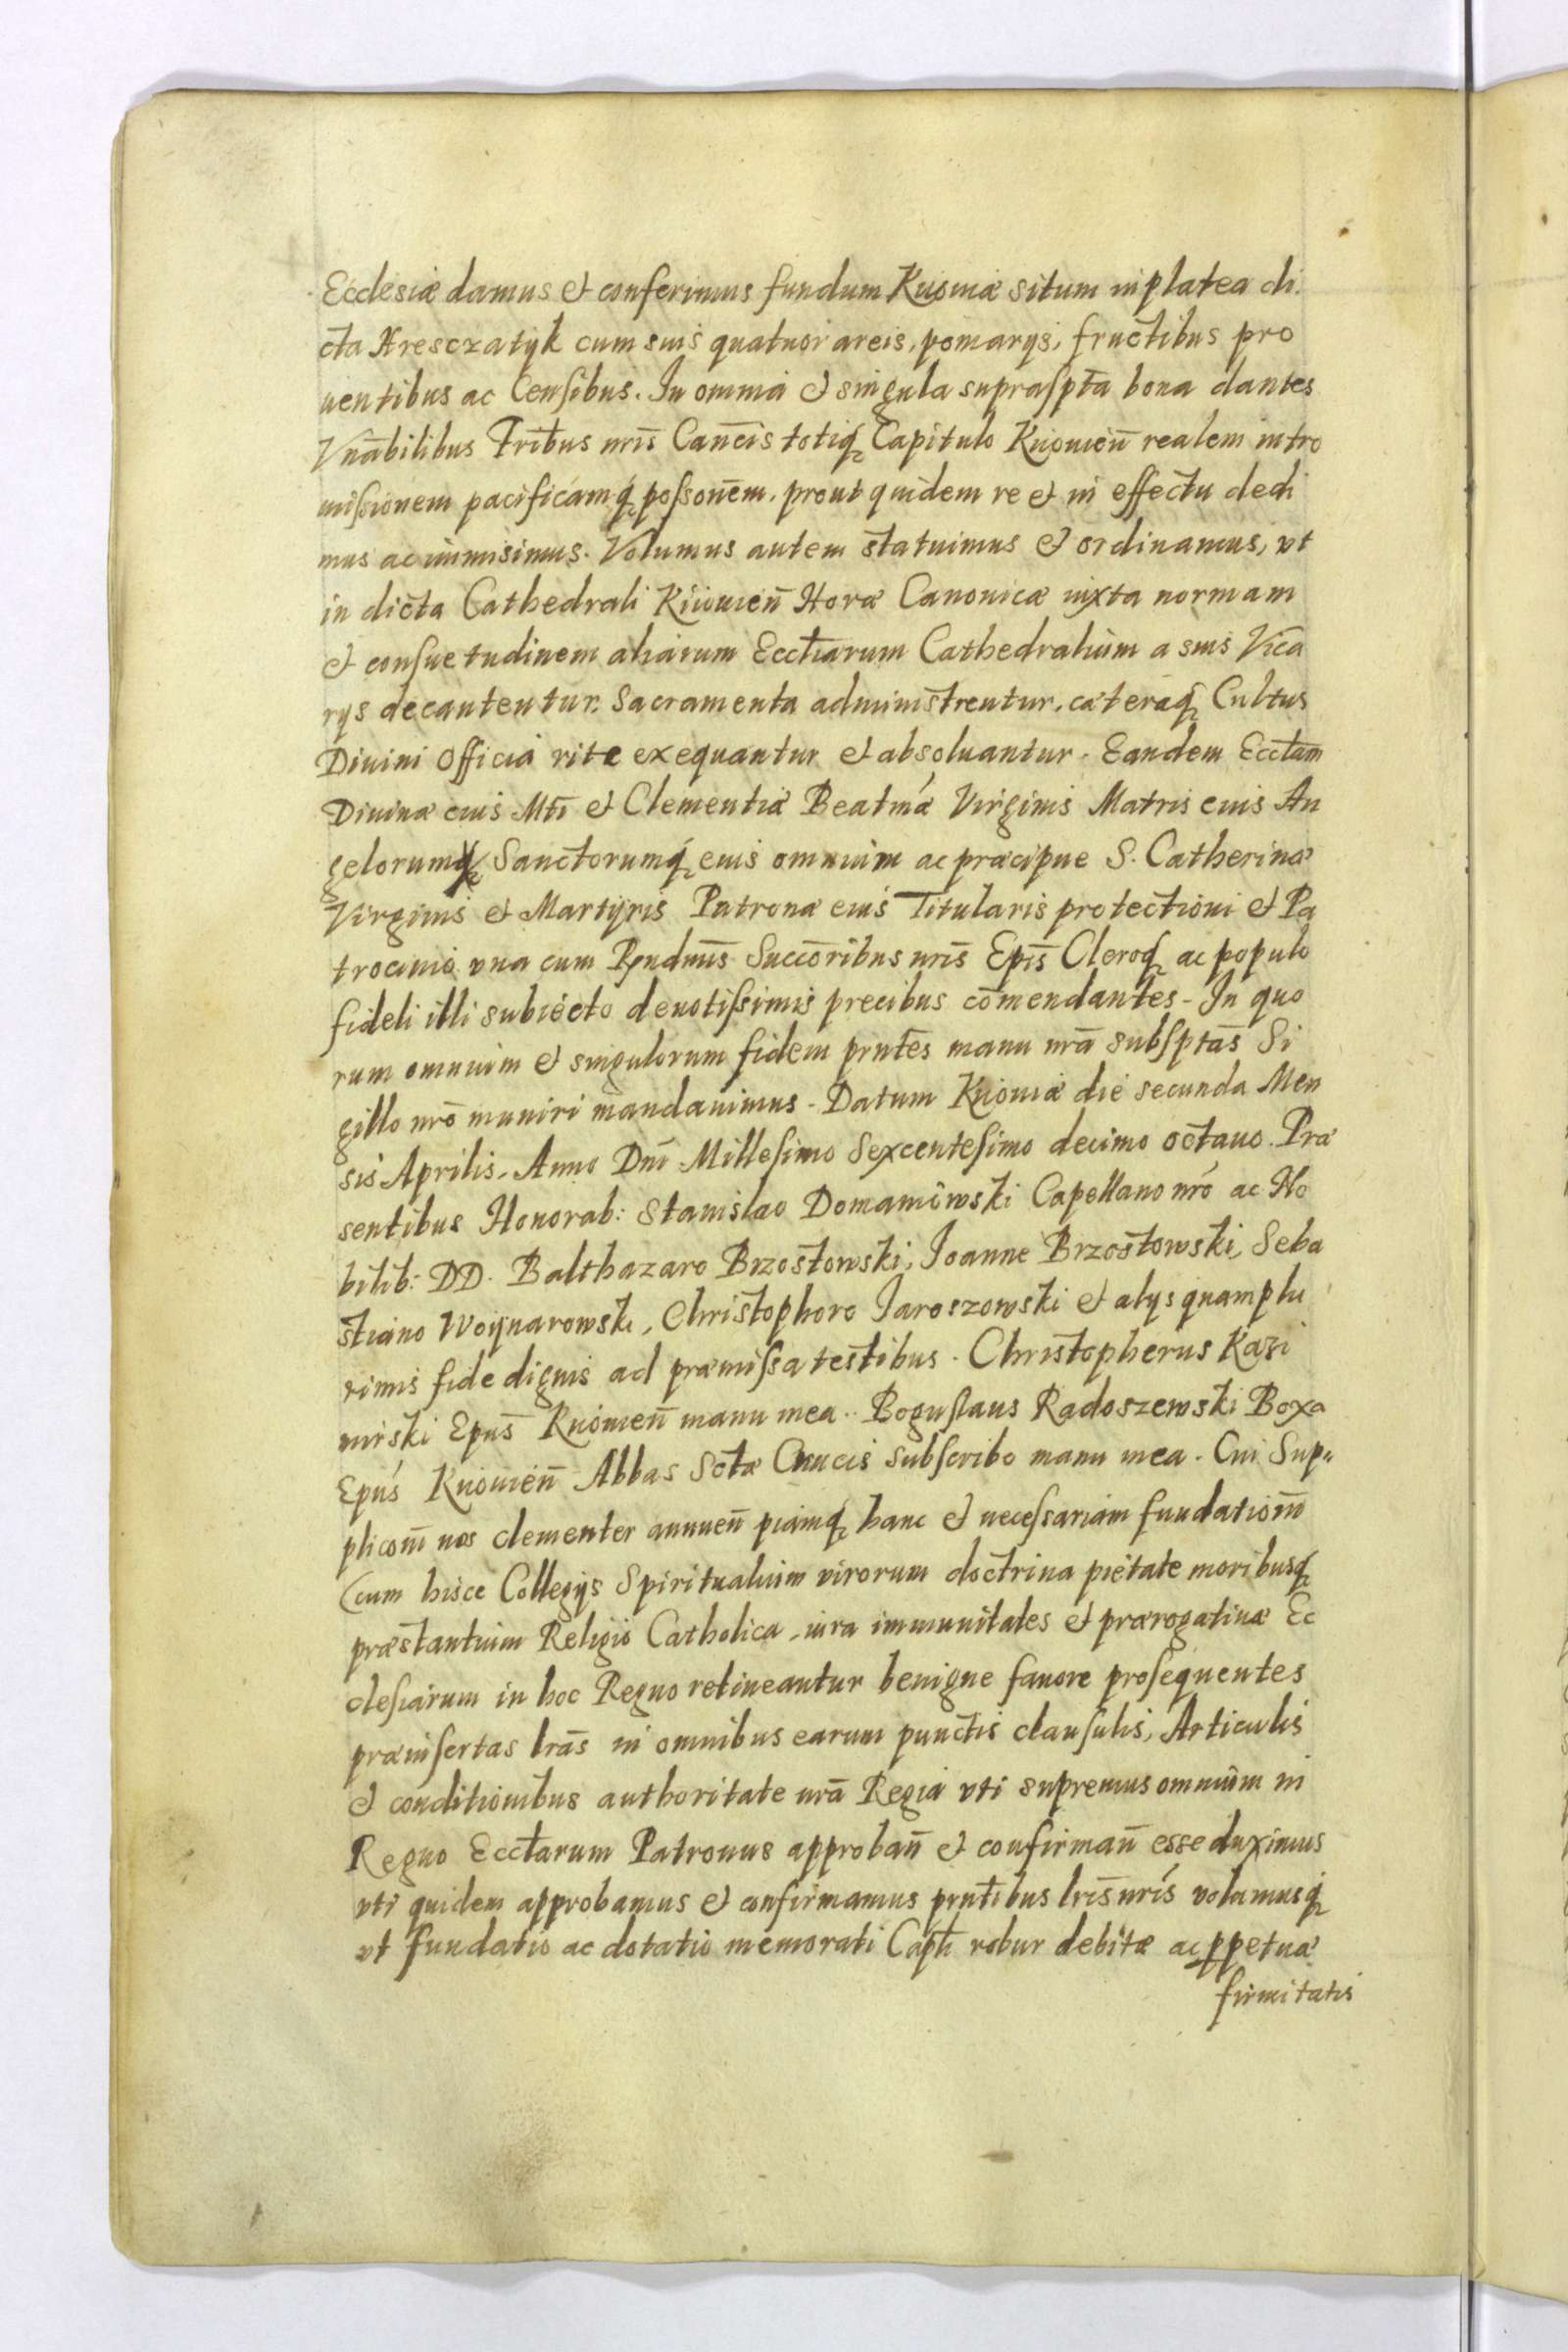 Ecclesiæ damus et conferimus fundum Kiiouiæ situm in platea di
cta Hresczatyk cum suis quatuor areis, pomarijs, fructibus pro
uentibus ac Censibus. In omnia et singula supraspta bona dantes
Vnābilibus Frībus nrīs Canēis totiq Capitulo Kiiouien̄ realem intro
missionem pacificamq possonēm. prout quidem re et in effectu dedi
mus ac immisimus. Volumus autem statuimus et ordinamus, vt
in dicta Cathedrali Kiiouien̄ Horæ Canonicæ iuxta normam
et consuetudinem aliarum Eccliarum Cathedralium a suis Vica
rijs decantentur. Sacramenta administrentur, cæteraq Cultus
Diuini Officia rite exequantur et absoluantur. Eandem Ecctam
Diuinæ eius Mti et Clementiæ Beatmæ Virginis Matris eius An
gelorumq Sanctorumq eius omnium ac præcipue S. Catherinæ
Virginis et Martyris Patronæ eius Titularis protectioni et Pa
trocinio vna cum Rndmīs Succōribus nrīs Epīs Cleroq ac populo
fideli illi subiecto deuotissimis precibus cōmendantes. In quo
rum omnium et singulorum fidem prntēs manu nrā subsptās Si
gillo nrō muniri mandauimus. Datum Kiiouiæ die secunda Men
sis Aprilis. Anno Dnī Millesimo Sexcentesimo decimo octauo. Præ
sentibus Honorab: Stanislao Domaniowski Capellano nrō ac No
bilib: DD. Balthazaro Brzostowski, Joanne Brzostowski, Seba
stiano Woynarowski, Christophoro Jaroszowski et alijs quamplu
rimis fide dignis ad præmissa testibus. Christopherus Kazi
mirski Epūs Kiiouien̄ manu mea. Boguslaus Radoszewski Boxa
Epūs Kiiouien̄ Abbas Sctæ Crucis subscribo manu mea. Cui Sup„
pliconī nos clementer annuen̄ piamq hanc et necessariam fundationē
(cum hisce Collegijs Spiritualium virorum doctrina pietate moribusq
præstantium Religio Catholica, iura immunitates et prærogatiuæ Ec
clesiarum in hoc Regno retineantur benigne fauore prosequentes
præinsertas lrās in omnibus earum punctis clausulis, Articulis
et conditionibus authoritate nrā Regia vti supremus omnium in
Regno Ecctarum Patronus approban̄ et confirman̄ esse duximus
vti quidem approbamus et confirmamus prntibus lrīs nrīs volumusq
vt fundatio ac dotatio memorati Caplī robur debitæ ac ppetuæ
firmitatis